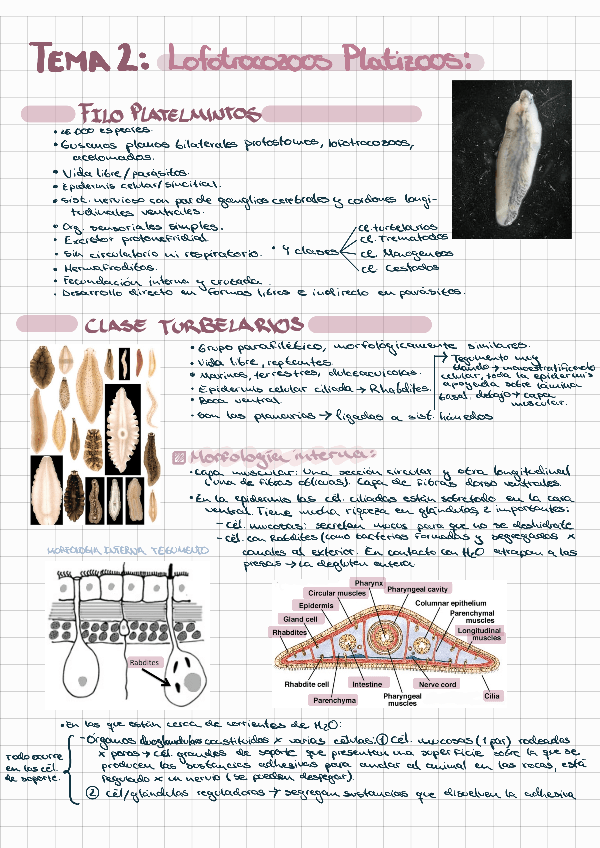 TEMA 2: Lofotrocozoos Platizoos:
FILO PLATELMINTOS
• 26.000 especies.
• Gusanos planos bilaterales protostomos, lofotrocozoos,
acelomados.
• Vida libre/parásitos.
• Epidermis celular/sincitial.
• Sist. nervioso con par de ganglios cerebrales y cordones longi-
tudinales ventrales.
• Org. sensoriales simples.
• Excretor protonefridial.
• Sin circulatorio ni respiratorio.
• Hermafroditos.
• Fecundación interna y cruzada.
• Desarrollo directo en formas libres e indirecto en parásitos.
• 4 clases
Cl. turbelarios
Cl. Trematodos
Cl. Monogeneos
Cl. Cestodos
CLASE TURBELARIOS
• Grupo parafilético, morfológicamente similares.
• Vida libre, reptantes.
• Marinos, terrestres, dulceacuícolas.
• Epidermis celular ciliada → Rhabdites.
• Boca ventral
• Son las planarias → ligadas a sist. húmedos
Tegumento muy
blando → monoestratificado
celular, toda la epidermis
apoyada sobre lámina
basal. debajo → capa
muscular.
Morfología interna:
• Capa muscular: Una sección circular y otra longitudinal
(una de fibras oblicuas). Capa de fibras dorso ventrales.
• En la epidermis las cél. ciliadas están sobretodo en la cara
ventral. Tiene mucha riqueza en glándulas 2 importantes:
– cél. mucosas: secretan mucus para que no se deshidrate
– cél. con Rabdites (como bacterias formadas y segregadas x
canales al exterior. En contacto con H2O atrapan a las
presas → la degluten entera
MORFOLOGIA INTERNA TEGUMENTO
Rabdites
Pharynx
Circular muscles
Pharyngeal cavity
Epidermis
Columnar epithelium
Gland cell
Parenchymal
muscles
Rhabdites
Longitudinal
muscles
Rhabdite cell
Intestine
Nerve cord
Parenchyma
Pharyngeal
muscles
Cilia
• En las que están cerca de corrientes de H2O:
– Órganos duoglandulares constituidos x varias células: ① Cél. mucosas (1 par) rodeadas
x poros → cél grandes de soporte que presentan una superficie sobre la que se
producen las sustancias adhesivas para anclar al animal en las rocas, está
regulado x un nervio (se pueden despegar).
② cél/glándulas reguladoras → segregan sustancias que disuelven la adhesiva
todo ocurre
en las cél.
de soporte.